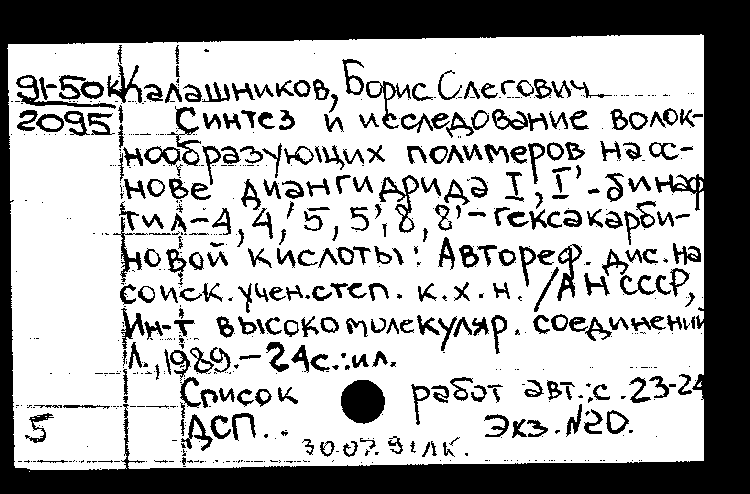 91-50к Калашников, Борис Олегович.
2095 Синтез и исследование волок-
нообразующих полимеров на ос-
нове диангидрида I, I'-бинаф
тил-4,4',5,5',8,8'-гексакарби-
новой кислоты: Автореф. дис. на
соиск. учен. степ. к.х.н. /АН СССР,
Ин-т высокомолекуляр. соединений
Л., 1989.-24с.:ил.
Список работ авт.:с.23-24
5 ДСП.. Экз.N20.
30.07.91 ЛК.